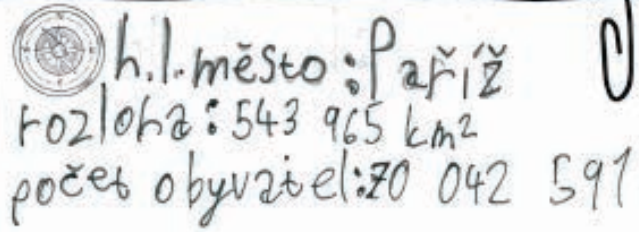 h.l.město:Paříž
rozloha:543 965 km²
počet obyvatel:70 042 591